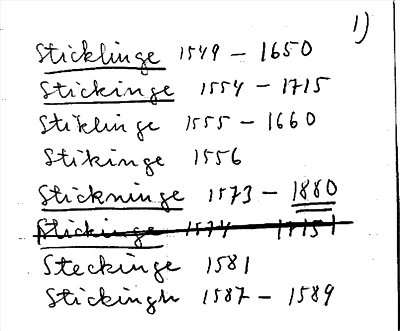 1)
Sticklinge 1549 – 1650
Stickinge 1554 – 1715
Stiklinge 1555 – 1660
Stikinge 1556
Stickninge 1573 – 1880
Stickinge 1574 1715
Steckinge 1581
Stickingh 1587 – 1589